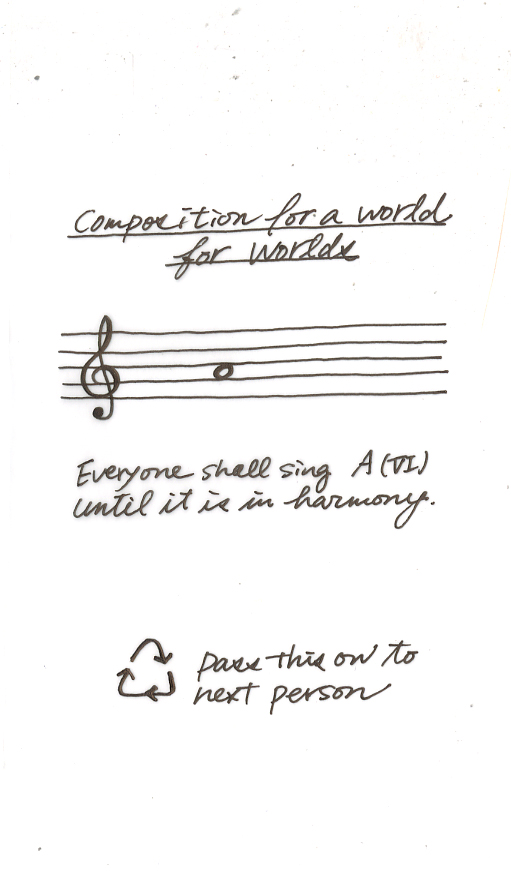 Composition for a world
for worlds
Everyone shall sing A (VI)
until it is in harmony.
pass this on to
next person